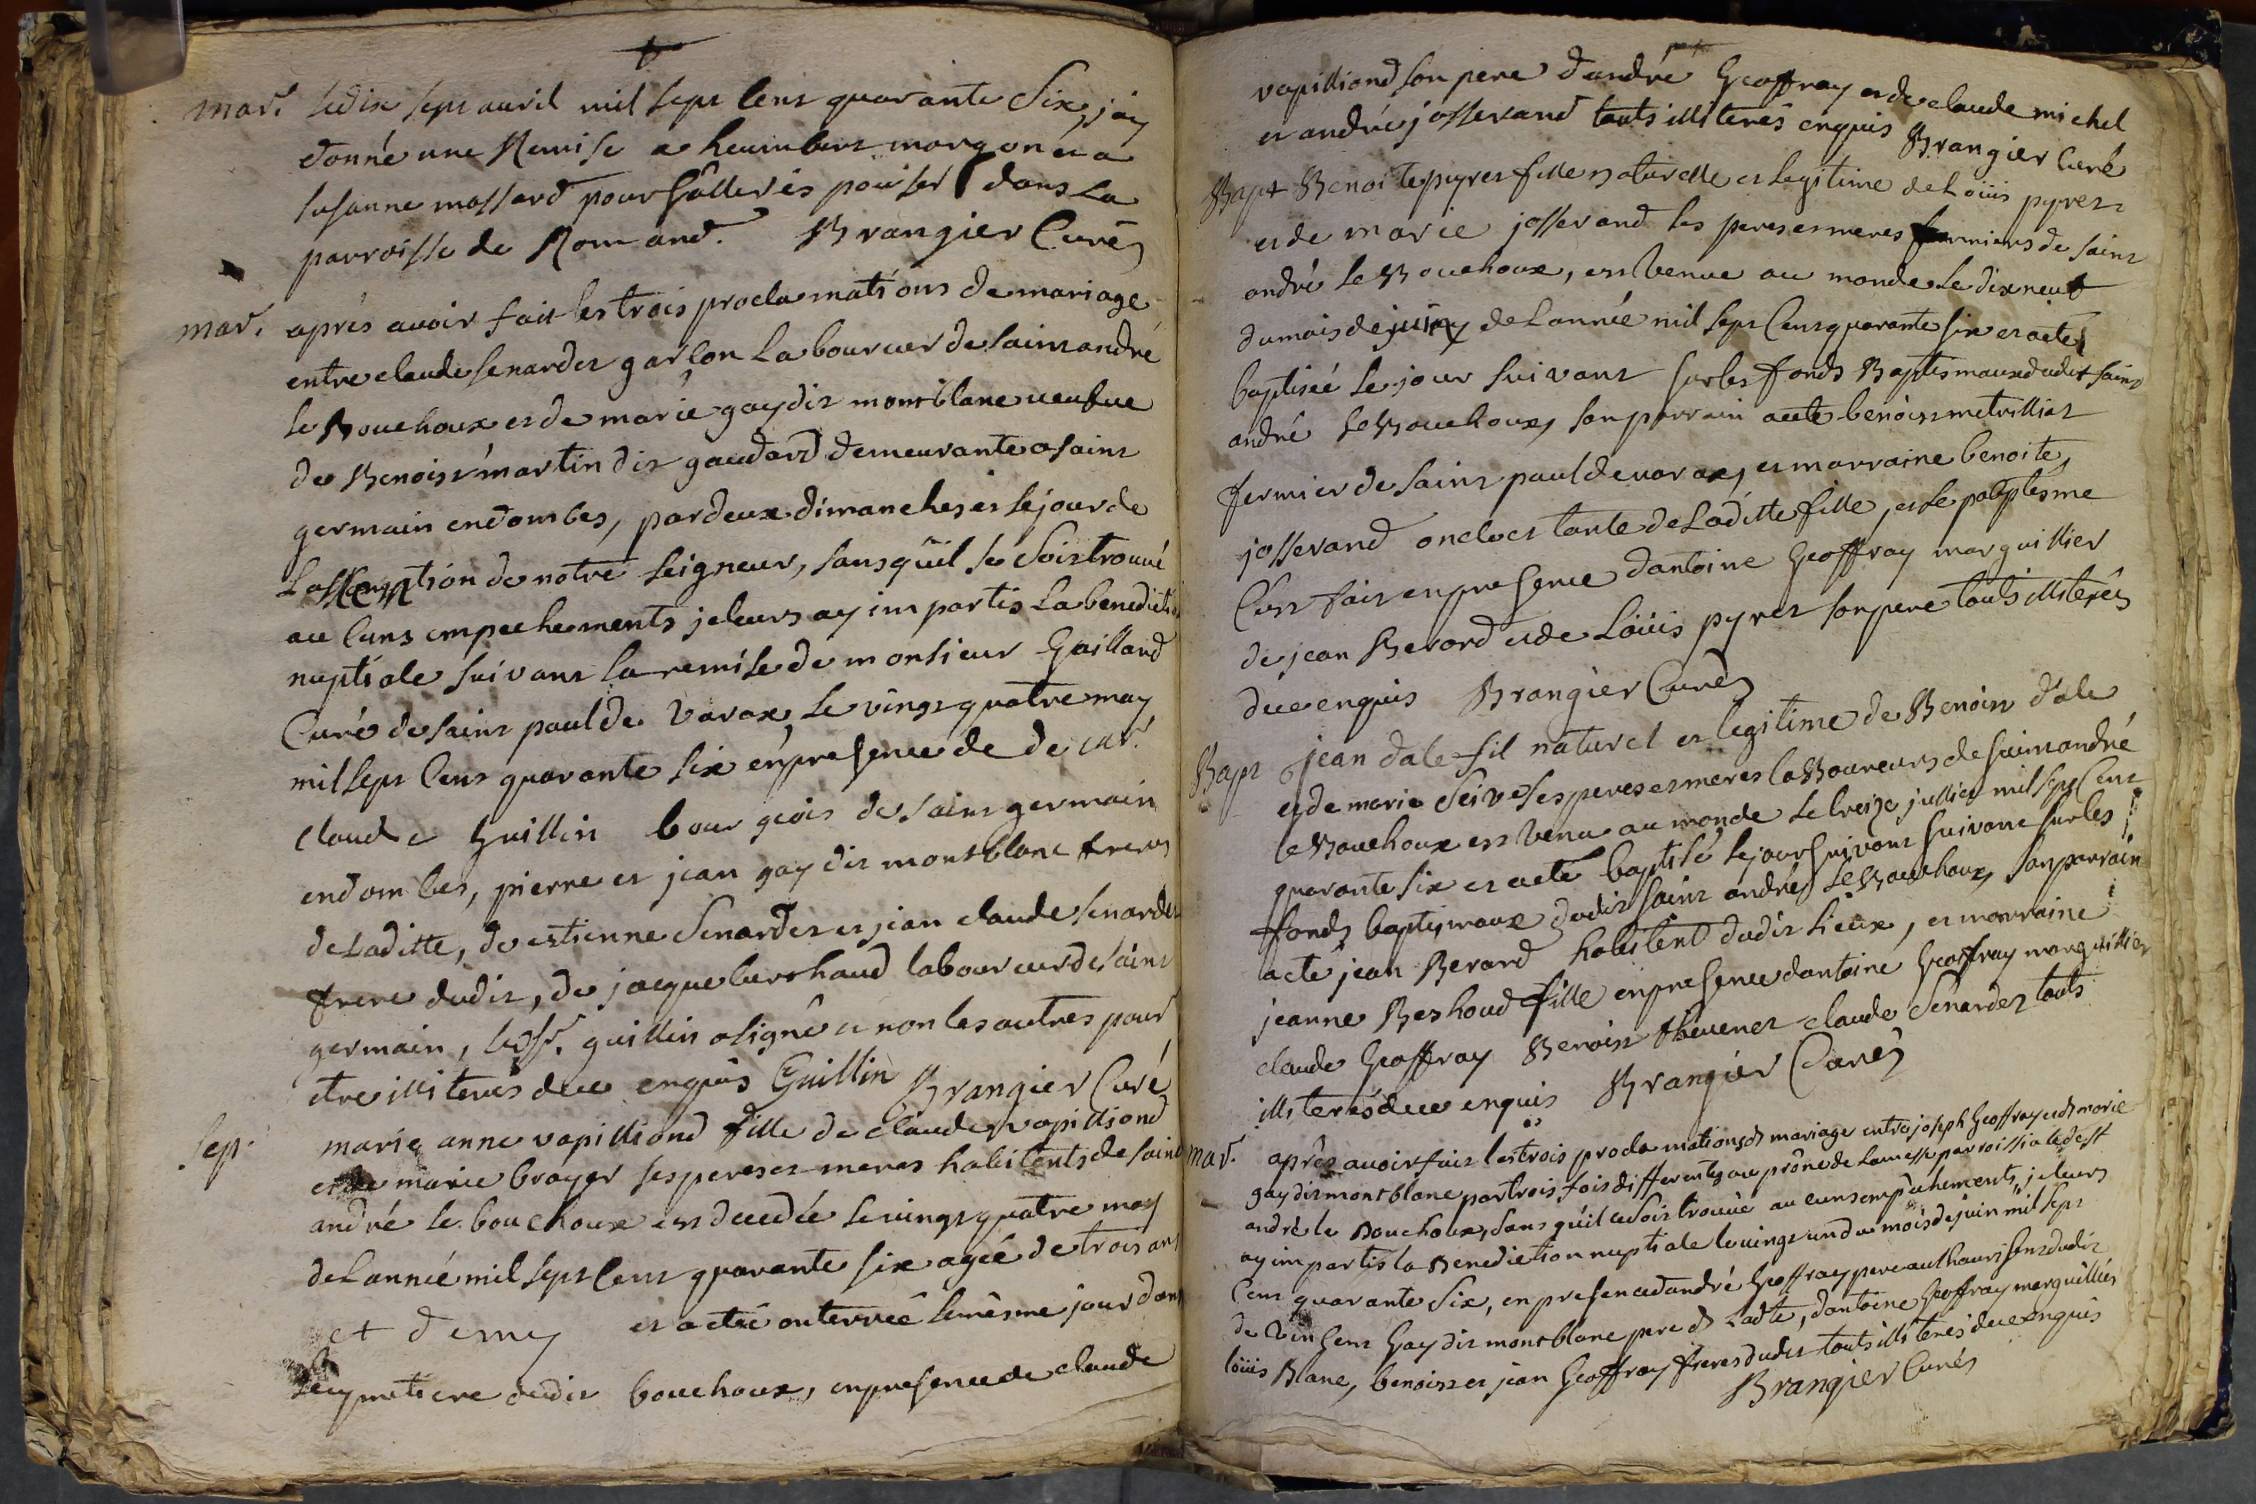 mar. le dix sept avril mil sept cent quarante six, j'ay
donné une Remise a heumbert mangon et a
susanne massard pour s'aller épouiser dans la
parroisse de Romand. Brangier Curé
mar. après avoir fait les trois proclamations de mariage
entre claude senardet garçon laboureur de saint andré
le Bouchoux et de marie gay dit montblanc veufve
de Benoist martin dit gaudard demeurante a saint
germain endombes, par deux dimanches et le jour de
Lassension de notre seigneur, sans qu'il se soit trouvé
aucuns empechements je leurs ay impartis la benedicti
nuptiale suivant la remise de monsieur Gaillard
Curé de saint paul de varax le vingt quatre may
mil sept cent quarante six en presence de de sieur
claude Guillin bourgeois de saint germain
endombes, pierre et jean gay dit montblanc freres
de Laditte, de estienne Senardet et jean claude senardet
frere dudit, de jacque burthaud laboureur de saint
germain, ledsr. guillin a signé et non les autres pour
etre illiterés de ce enquis Guillin Brangier Curé
sep. marie anne vapilliond fille de claude vapilliond
et de marie broyer ses peres et meres habitents de saint
andré le bouchoux est decedée le vingt quatre may
de Lannée mil sept cent quarante six agée de trois ans
et demy et a etée enterreé le mesme jour dans
le cymetiere dudit bouchoux, en presence de claude
vapilliond son pere d'andré Geoffray et de claude michel
et andré josserand touts illiterés enquis Brangier Curé
Bapt Benoite pyret fille naturelle et legitime de Loüis pyret
et de marie josserand ses peres et meres fermiers de saint
andré le Bouchoux, est venue au monde le dix neuf
du mois de juin de Lannée mil sept cent quarante six et a eté
baptisée le jour suivant sur les fonds Baptismaux dudit saint
andré le Bouchoux, son parrain a eté benoist metrilliat
fermier de saint paul de varax, et marraine benoite
josserand oncle et tante de Laditte fille, et le paptesme
s'est fait en presence d'antoine Geoffray marguillier
de jean Berard et de Loüis pyret son pere touts illiterés
de ce enquis Brangier Curé
Bapt jean dale fil naturel et legitime de Benoist dale
et de marie Seive ses peres et meres laboureurs de saint andré
le Bouchoux est venu au monde le treize jullier mil sept cent
quarante six et a eté baptisé le jour suivant suivant sur les
fonds baptismaux dudit saint andré le Bouchoux, son parrain
a eté jean Berard habitent dudit lieux, et marraine
jeanne Beshoud fille en presence d'antoine Geoffray marguillier
claude Geoffray Benoist thevenet claude Senardet touts
illiterés de ce enquis Brangier Curé
mar. après avoir fait les trois proclamations de mariage entre joseph Geoffray et de marie
gay dit montblanc par trois fois differents au prône de la messe parroissiale de st
andré le Bouchoux, sans qu'il ce soit trouvé aucuns empêchements, je leurs
ay impartis la Benediction nuptiale le vingt un du mois de juin mil sept
cent quarante six, en presence d'andré Geoffray pere authaurisent dudit
de vincent Gay dit montblanc pere de Ladte, d'antoine Geoffray marguilliér
loüis Blanc, benoist et jean Geoffray freres dudit touts illiterés de ce enquis
Brangier Curé